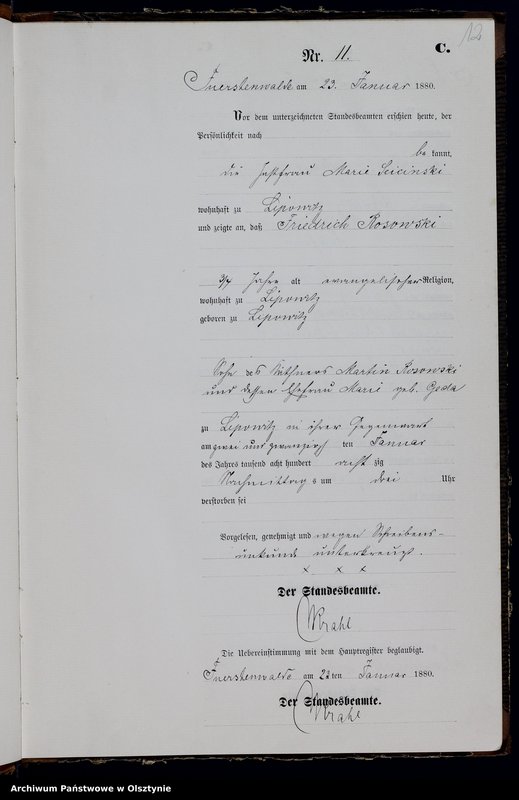 12
C.
Nr. 11.
Fuerstenwalde am 23. Januar 1880.
Vor dem unterzeichneten Standesbeamten erschien heute, der
Persönlichkeit nach
be kannt,
die Jnstfrau Marie Scicinski
wohnhaft zu Lipowitz
und zeigte an, daß Friedrich Rosowski
3/4 Jahre alt evangelischer Religion,
wohnhaft zu Lipowitz
geboren zu Lipowitz
Sohn des Käthners Martin Rosowski
und dessen Ehefrau Marie geb. Goda
zu Lipowitz in ihrer Gegenwart
am zwei und zwanzigsten Januar
des Jahres tausend acht hundert acht zig
Nachmittag s um drei Uhr
verstorben sei
Vorgelesen, genehmigt und wegen Schreibens-
unkunde unterkreuzt.
x x x
Der Standesbeamte.
Krahl
Die Uebereinstimmung mit dem Hauptregister beglaubigt.
Fuerstenwalde am ten Januar 1880.
Der Standesbeamte.
Krahl
Archiwum Państwowe w Olsztynie